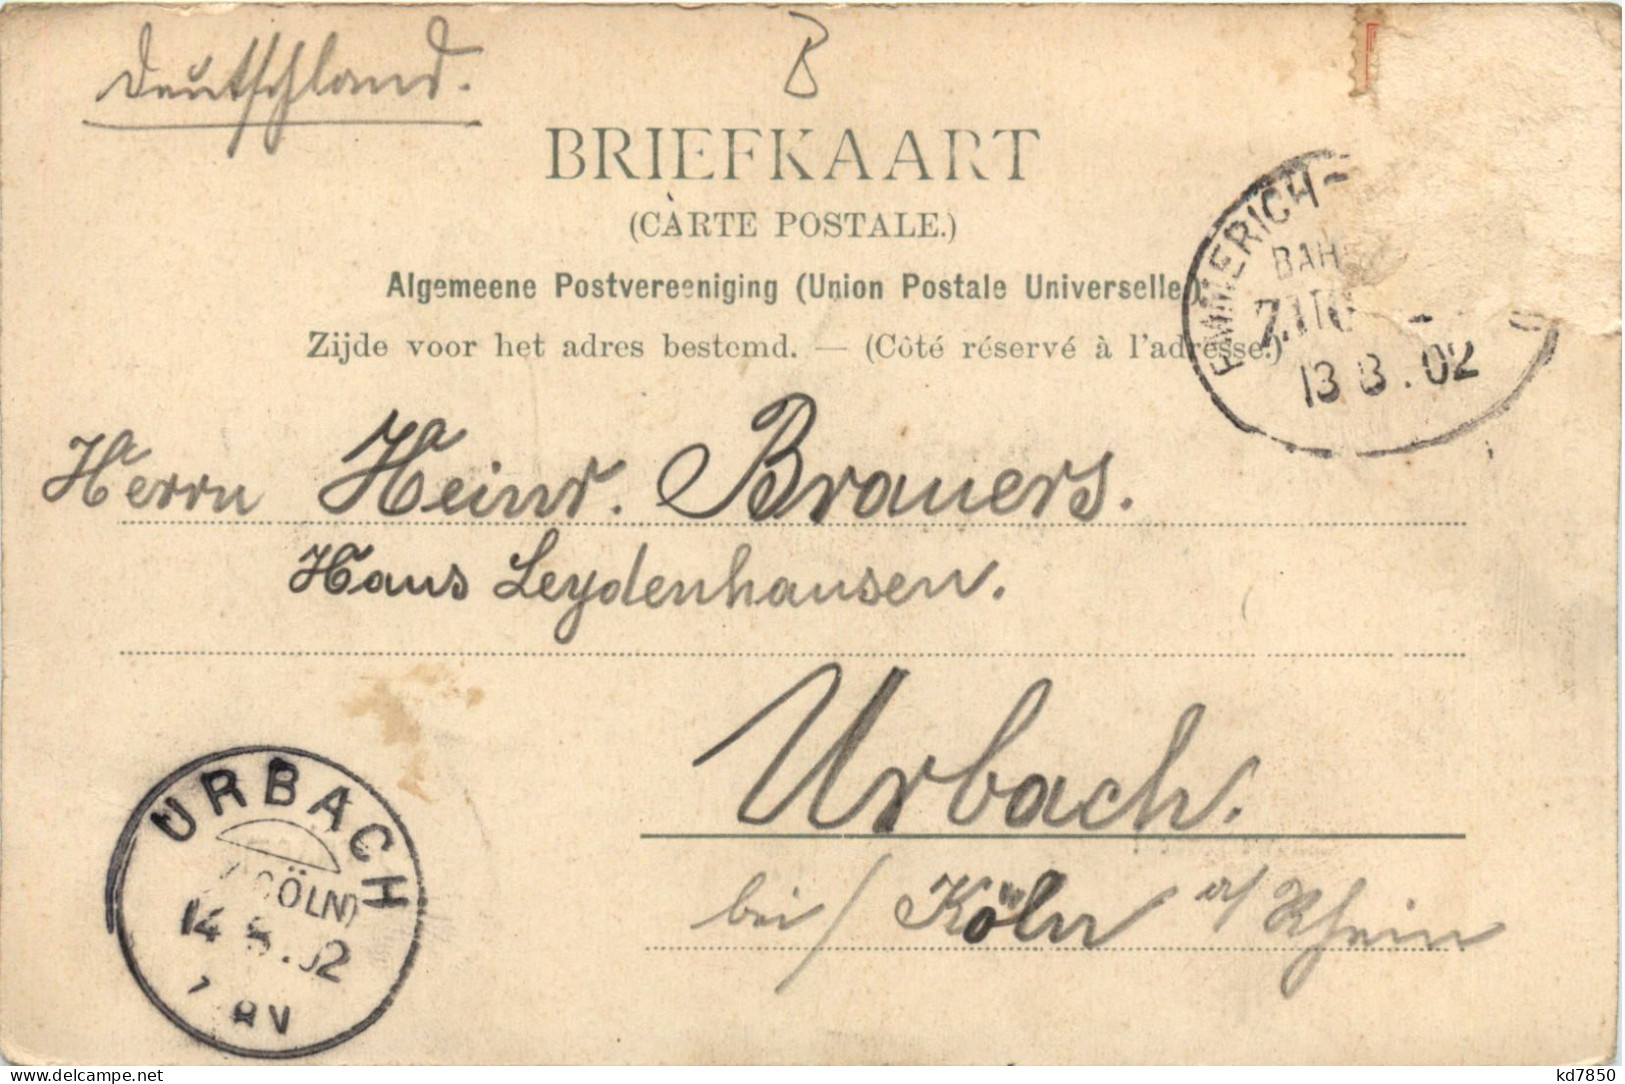 Deutschland.
B
BRIEFKAART
(CARTE POSTALE.)
Algemeene Postvereeniging (Union Postale Universelle)
Zijde voor het adres bestemd. — (Côté réservé à l'adresse.)
EMMERICH~
BAH
ZUG
13 8.02
Herrn Heinr. Brauers.
Haus Leydenhausen.
Urbach.
bei/Köln a/Rhein
URBACH
(CÖLN)
14 8.02
kd7850